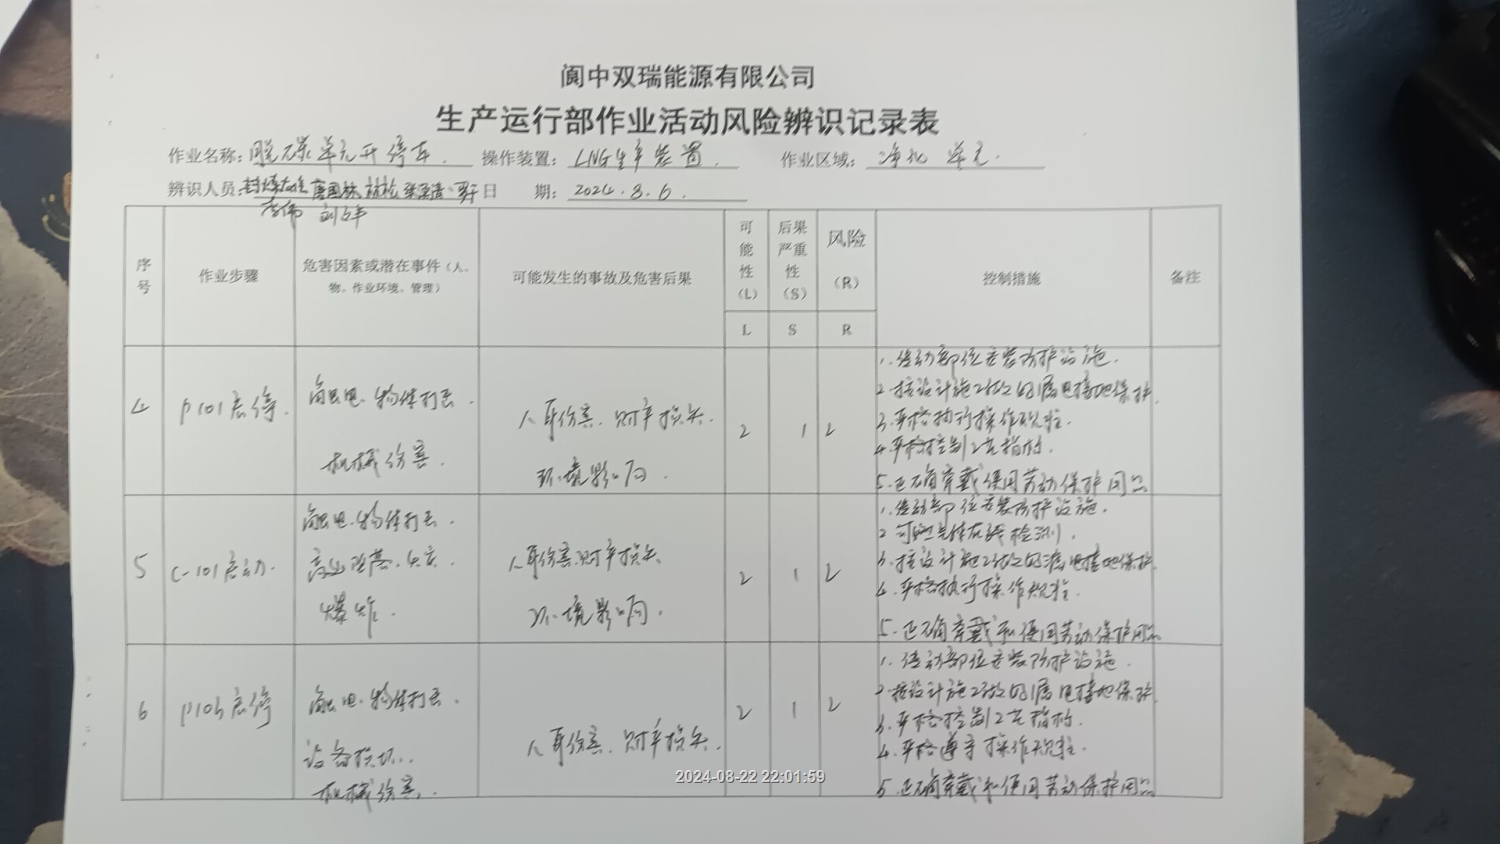 阆中双瑞能源有限公司
生产运行部作业活动风险辨识记录表
作业名称: 脱碳单元开停车. 操作装置: LNG生产装置 作业区域: 净化单元.
辨识人员: 日 期: 2024.8.6.
序号 作业步骤 危害因素或潜在事件（人、物、作业环境、管理） 可能发生的事故及危害后果 可能性（L） 后果严重性（S） 风险（R） 控制措施 备注
L S R
4 P101启停. 触电、物体打击. 机械伤害. 人身伤害、财产损失. 环境影响. 2 1 2
1.传动部位安装防护设施.
2.按设计施工接地保护.
3.严格执行操作规程.
4.严格控制工艺指标.
5.正确穿戴使用劳动保护用品
5 C-101启动. 触电、物体打击. 高处坠落、火灾 爆炸. 人身伤害、财产损失 环境影响. 2 1 2
1.传动部位安装防护设施.
2 可燃气体在线检测.
3.按设计施工接地保护.
4.严格执行操作规程.
5.正确穿戴和使用劳动保护用品
6 启停 触电、物体打击. 设备损坏. 机械伤害. 人身伤害、财产损失. 2 1 2
1.传动部位安装防护设施.
2.按设计施工接地保护.
3.严格控制工艺指标.
4.严格遵守操作规程.
5.正确穿戴和使用劳动保护用品
2024-08-22 22:01:59